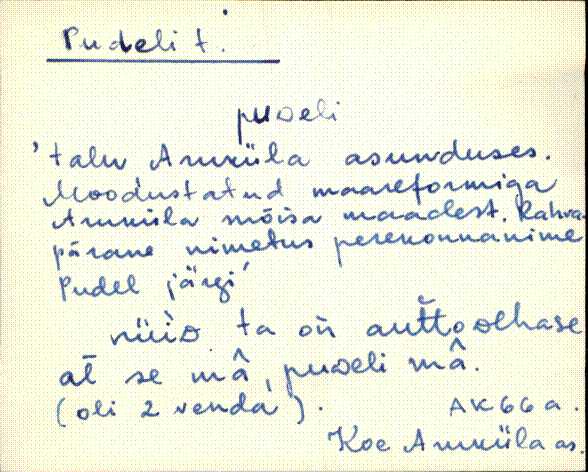 Pudeli t.
pudeli
'talu Annküla asunduses.
Moodustatud maareformiga
Annküla mõisa maadest. Rahva-
pärane nimetus perekonnanime
Pudel järgi'
nüid ta on
at se mâ, pudeli mâ.
(oli 2 venda).
AK66a.
Koe Annküla as.